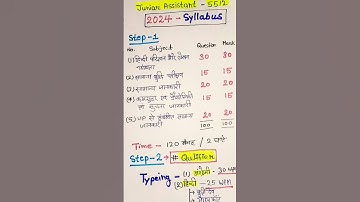 Junior Assistant - 5512
2024 - Syllabus
Step-1
No. Subject Question Mark
(1) हिन्दी परिज्ञान और लेखन योग्यता 30 30
(2) सामान्य बुद्धि परीक्षण 15 15
(3) सामान्य जानकारी 20 20
(4) कम्प्यूटर एवं प्रौद्योगिकी 15 15
(5) UP से संबंधित सामान्य जानकारी 20 20
100 100
Time - 120 मिनट / 2 घण्टे
Step-2 → # Qulifier
Typeing - (1) अंग्रेजी - 30 WPM
(2) हिन्दी - 25 WPM